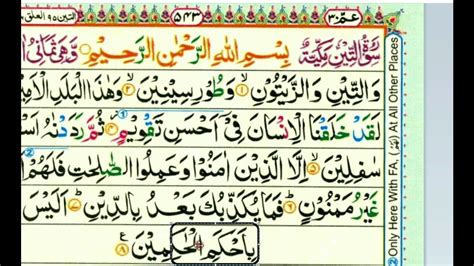 عمّ ٣٠ ٥٤٣ التين ٩٥ العلق
سُوْرَةُ التِّيْنِ مَكِّيَّةٌ بِسْمِ اللهِ الرَّحْمٰنِ الرَّحِيْمِ وَّهِيَ ثَمَانِيْ
وَالتِّيْنِ وَالزَّيْتُوْنِ ۝١ وَطُوْرِ سِيْنِيْنَ ۝٢ وَهٰذَا الْبَلَدِ الْاَمِيْ
لَقَدْ خَلَقْنَا الْاِنْسَانَ فِيْۤ اَحْسَنِ تَقْوِيْمٍ ۝ ثُمَّ رَدَدْنٰهُ اَسْ
سٰفِلِيْنَ ۝٥ اِلَّا الَّذِيْنَ اٰمَنُوْا وَعَمِلُوا الصّٰلِحٰتِ فَلَهُمْ
غَيْرُ مَمْنُوْنٍ ۝٦ فَمَا يُكَذِّبُكَ بَعْدُ بِالدِّيْنِ ۝٧ اَلَيْسَ
بِاَحْكَمِ الْحٰكِمِيْنَ ۝٨
② Only Here With FA. (لَهُمْ) At All Other Places